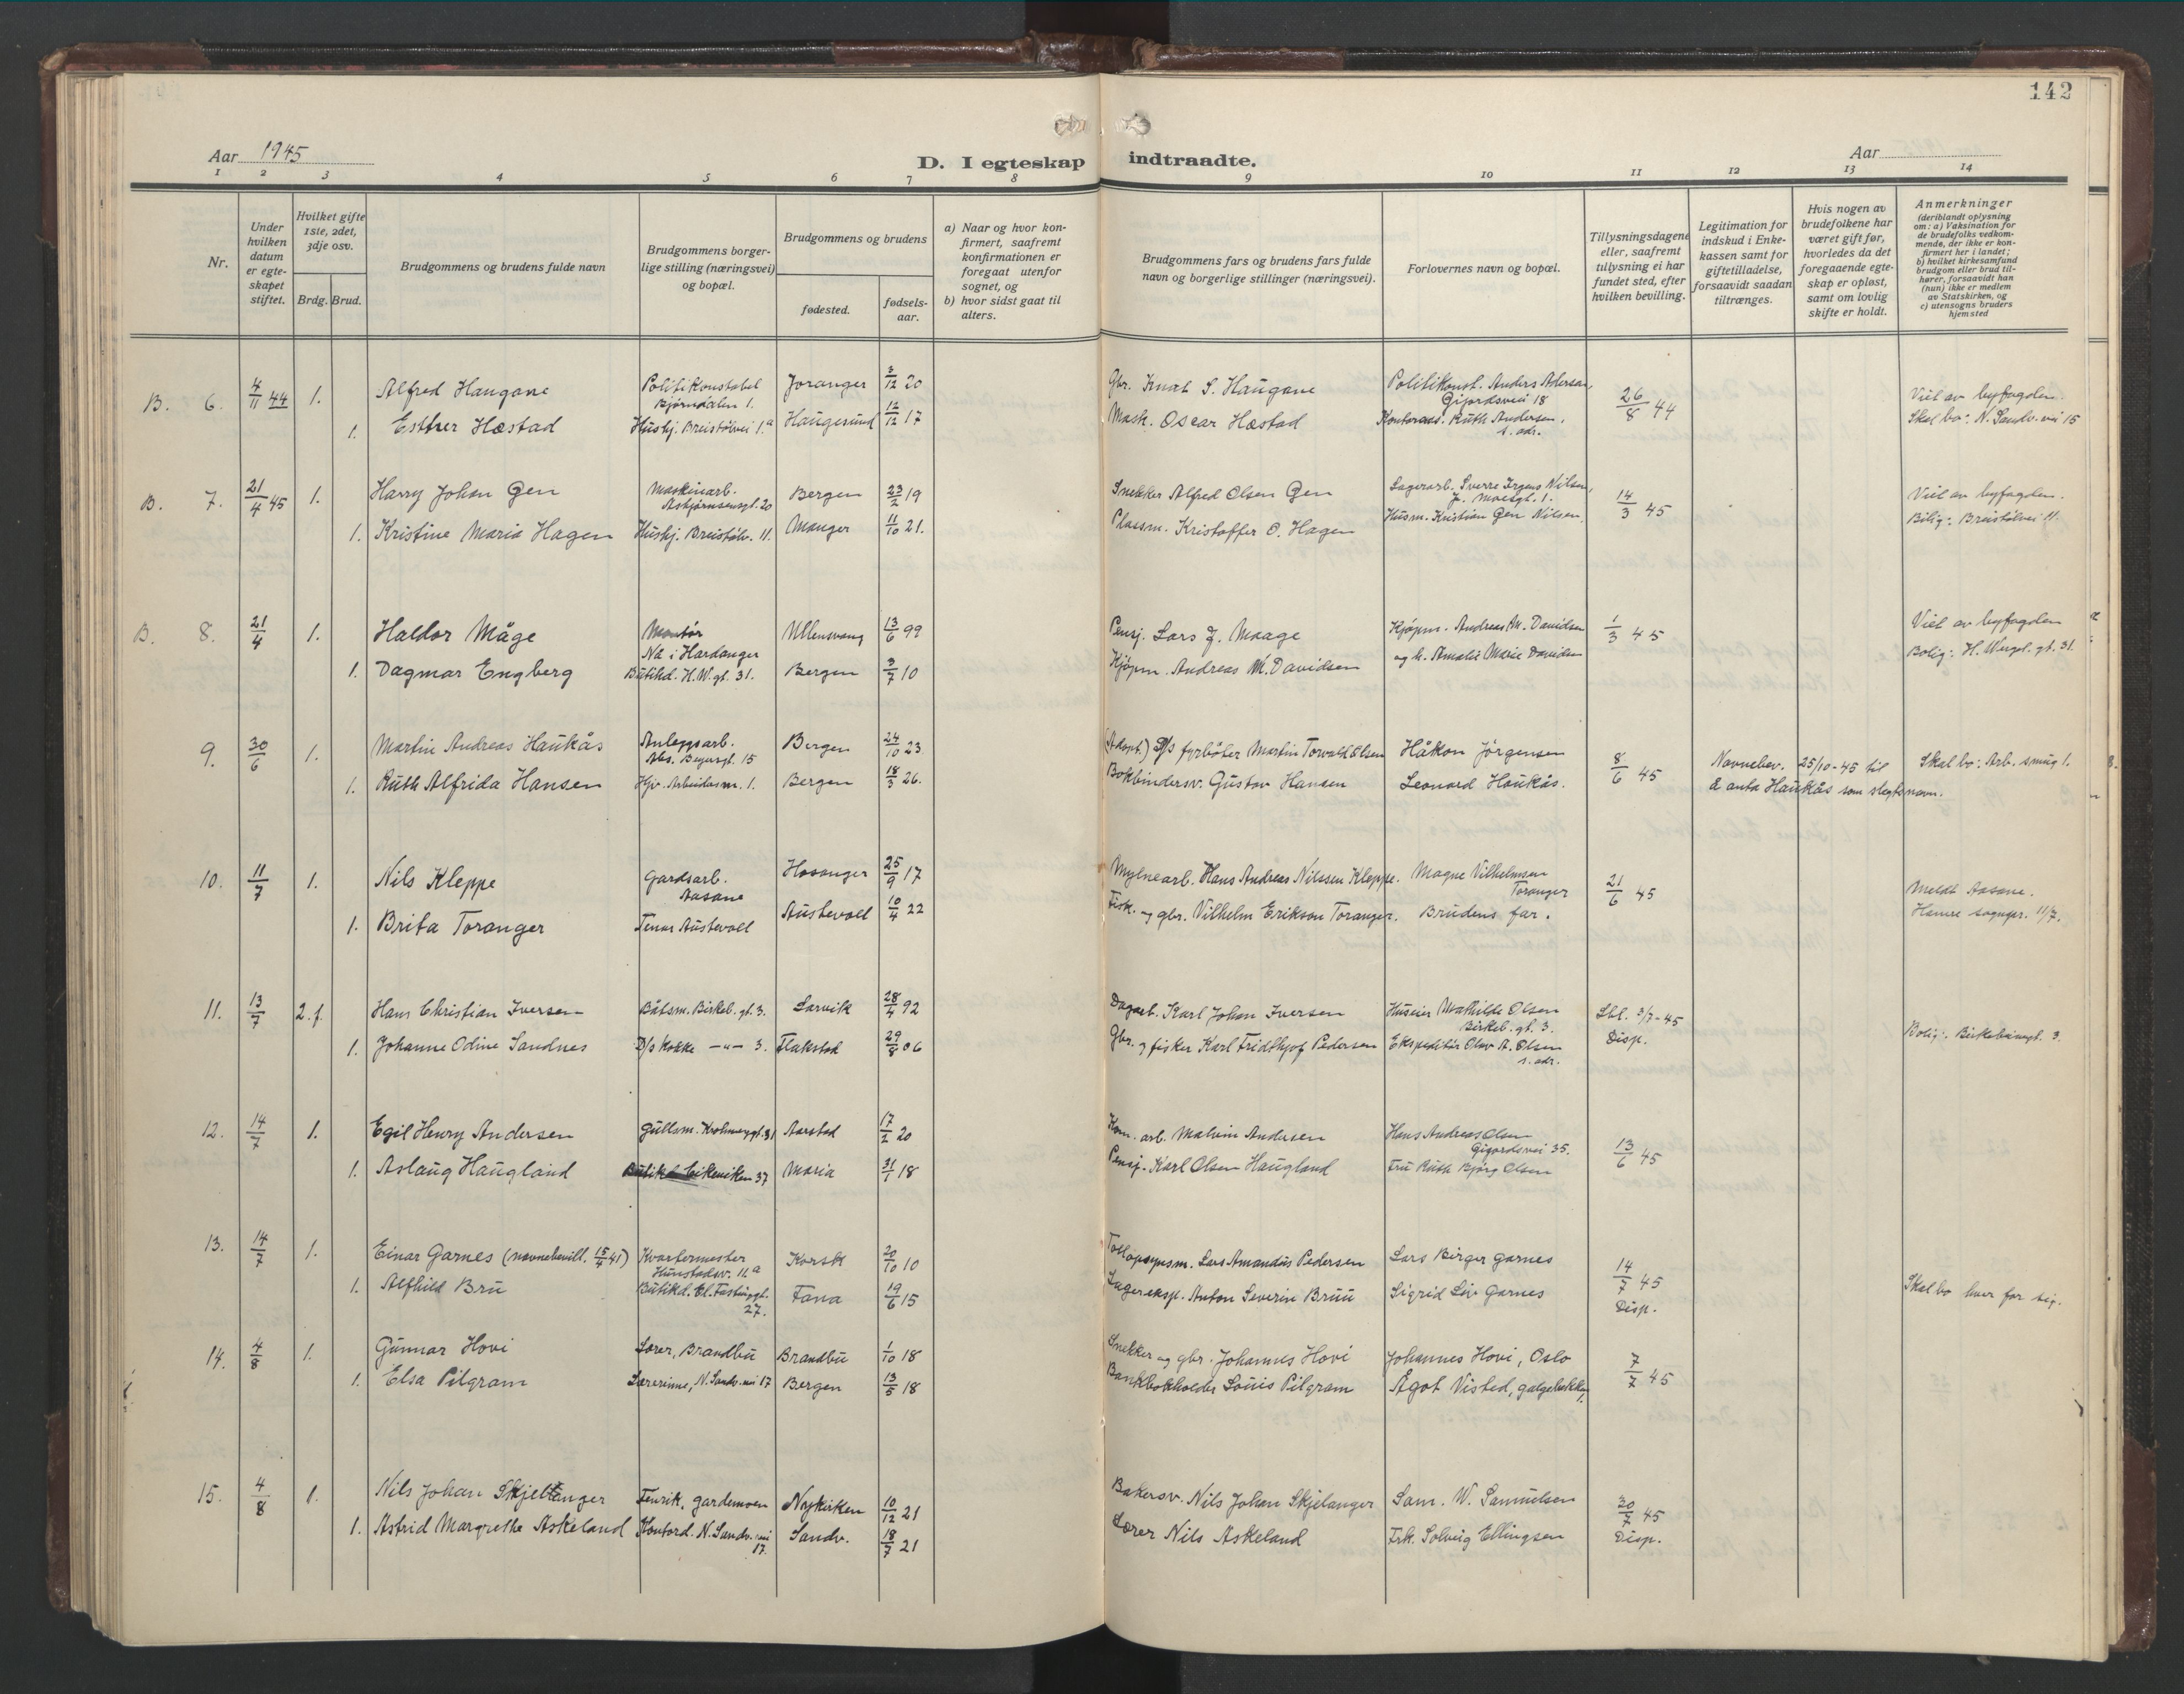 142
Aar 1945
D. I egteskap indtraadte.
Aar
1 2 3 4 5 6 7 8 9 10 11 12 13 14
Nr.
Under hvilken datum er egteskapet stiftet.
Hvilket gifte 1ste, 2det, 3dje osv.
Brdg. Brud.
Brudgommens og brudens fulde navn
Brudgommens borgerlige stilling (næringsvei) og bopæl.
Brudgommens og brudens
fødested.
fødselsaar.
a) Naar og hvor konfirmert, saafremt konfirmationen er foregaat utenfor sognet, og
b) hvor sidst gaat til alters.
Brudgommens fars og brudens fars fulde navn og borgerlige stillinger (næringsvei).
Forlovernes navn og bopæl.
Tillysningsdagene eller, saafremt tillysning ei har fundet sted, efter hvilken bevilling.
Legitimation for indskud i Enkekassen samt for giftetilladelse, forsaavidt saadan tiltrænges.
Hvis nogen av brudefolkene har været gift før, hvorledes da det foregaaende egteskap er opløst, samt om lovlig skifte er holdt.
Anmerkninger
(deriblandt oplysning om: a) Vaksination for de brudefolks vedkommende, der ikke er konfirmert her i landet;
b) hvilket kirkesamfund brudgom eller brud tilhører, forsaavidt han (hun) ikke er medlem av Statskirken, og
c) utensogns bruders hjemsted
B. 6. 4/11 44 1. Alfred Haugane Politikonstabel Bjørndalen 1. Joranger 3/12 20 Gbr. Knut S. Haugane Politikonst. Anders Adersen, Gjördsvei 18 26/8 44 Viet av byfogden.
1. Esther Hæstad Hushj. Breistølvei 1.a Haugesund 12/12 17 Mask. Oscar Hæstad Kontorass. Ruth Andersen, s. adr. Skal bo: N. Sandv. vei 15
B. 7. 21/4 45 1. Harry Johan Gen Maskinarb. Asbjørnsensgt. 20 Bergen 23/2 19 Snekker Alfred Olsen Gen Lagerarb. Sverre Irgens Nilsen, J. Moesgt. 1. 14/3 45 Viet av byfogden.
1. Kristine Maria Hagen Hushj. Breistølv. 11. Manger 11/10 21. Plassm. Kristoffer O. Hagen Husm. Kristian Gen Nilsen. Bolig: Breistølvei 11.
B. 8. 21/4 1. Haldor Måge Montør Nå i Hardanger Ullensvang 13/6 99 Pensj. Lars J. Maage Kjøpm. Andreas M. Davidsen 1/3 45 Viet av byfogden
1. Dagmar Engberg Butikd. H.W.gt. 31. Bergen 3/7 10 Kjøpm. Andreas M. Davidsen og h. Amalie Marie Davidsen Bolig: H. Wergel. gt. 31.
9. 30/6 1. Martin Andreas Haukås Anleggsarb. Abs. Beyersgt. 15 Bergen 24/10 23 (Adopt.) D/s fyrbøter Martin Torvald Olsen Håkon Jörgensen 8/6 45 Navnebev. 25/10-45 til Skal bo: Arb. smug 1.
1. Ruth Alfrida Hansen Hjv. Arbeidersm. 1. Bergen 18/3 26. Bokbindersv. Gustav Hansen Leonard Haukås. å anta Haukås som slegtsnavn.
10. 11/7 1. Nils Kleppe Gardsarb. Aasane Hosanger 25/9 17 Mylnearb. Hans Andreas Nilssen Kleppe. Magne Vilhelmsen Toranger 21/6 45 Meldt Aasane.
1. Brita Toranger Tenar Austevoll Austevoll 10/4 22 Fisk. og gbr. Vilhelm Erikson Toranger. Brudens far. Hamre sognepr. 11/7.
11. 13/7 2. f. Hans Christian Iversen Båtsm. Birkeb. gt. 3. Larvik 28/4 92 Dagarb. Karl Johan Iversen Huseier Mathilde Olsen Birkeb. gt. 3. Lbl. 3/7-45
1. Johanne Odine Sandnes D/s kokke -"- 3. Flakstad 29/8 06 Gbr. og fisker Karl Fridthjof Pedersen Ekspeditør Olav A. Olsen s. adr. Disp. Bolig: Birkebeinergt. 3.
12. 14/7 1. Egil Henry Andersen Gullsm. Krohnengt. 31 Aarstad 17/2 20 Kom. arb. Malvin Andersen Hans Andreas Olsen Gjördsvei 35. 13/6 45
1. Aslaug Haugland Eikeviken 37 Maria 31/1 18 Pensj. Karl Olsen Haugland Fru Ruth Bjørg Olsen
13. 14/7 1. Einar Garnes (navnebevill. 15/4 41) Kvartermester Hunstadsv. 11.a Korsk 20/10 10 Tollopsynsm. Lars Amandus Pedersen Lars Birger Garnes 14/7 45
1. Alfhild Bru Butikd. Fastingsgt. 27. Fana 19/6 15 Lagereksp. Anton Severin Bruu Sigrid Liv Garnes Disp. Skal bo hver for sig.
14. 4/8 1. Gunnar Hovi Lærer, Brandbu Brandbu 1/10 18 Snekker og gbr. Johannes Hovi Johannes Hovi, Oslo 7/7 45
1. Elsa Pilgram Lærerinne, N. Sandv. vei 17 Bergen 13/5 18 Bankbokholder Louis Pilgram Ågot Visted,
15. 4/8 1. Nils Johan Skjellanger Fenrik, Gardemoen Nykirken 10/12 21 Bakersv. Nils Johan Skjelanger Sam. W. Samuelsen 30/7 45
1. Astrid Margrethe Askeland Kontord. N. Sandv. vei 17. Sandv. 18/7 21 Lærer Nils Askeland Frk. Solveig Ellingsen Disp.